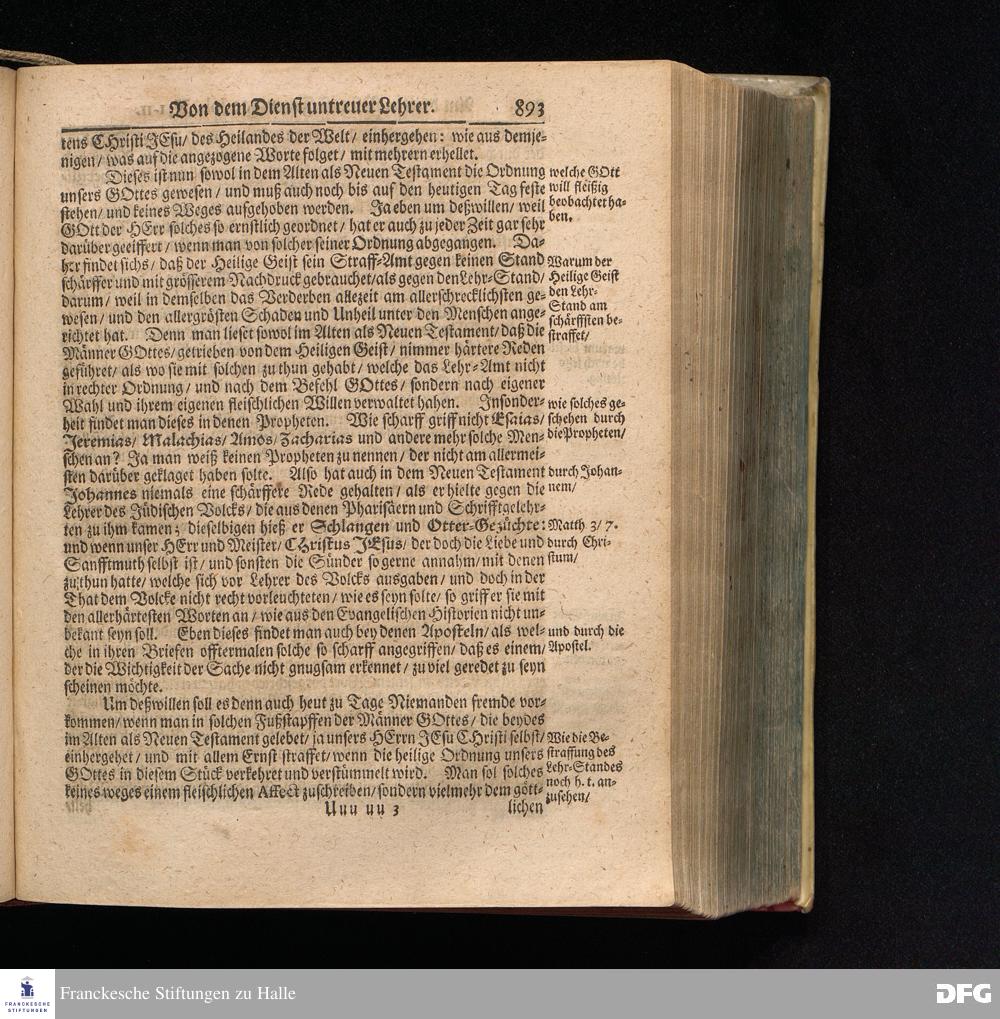 Von dem Dienst untreuer Lehrer. 893
tens CHristi JEsu/ des Heilandes der Welt/ einhergehen: wie aus demje-
nigen/ was auf die angezogene Worte folget/ mit mehrern erhellet.
Dieses ist nun sowol in dem Alten als Neuen Testament die Ordnung
unsers GOttes gewesen/ und muß auch noch bis auf den heutigen Tag feste
stehen/ und keines Weges aufgehoben werden. Ja eben um deßwillen/ weil
GOtt der HErr solches so ernstlich geordnet/ hat er auch zu jeder Zeit gar sehr
darüber geeiffert/ wenn man von solcher seiner Ordnung abgegangen. Da-
her findet sichs/ daß der Heilige Geist sein Straff-Amt gegen keinen Stand
schärffer und mit grösserem Nachdruck gebrauchet/ als gegen den Lehr-Stand/
darum/ weil in demselben das Verderben allezeit am allerschrecklichsten ge-
wesen/ und den allergrösten Schaden und Unheil unter den Menschen ange-
richtet hat. Denn man lieset sowol im Alten als Neuen Testament/ daß die
Männer GOttes/ getrieben von dem Heiligen Geist/ nimmer härtere Reden
geführet/ als wo sie mit solchen zu thun gehabt/ welche das Lehr-Amt nicht
in rechter Ordnung/ und nach dem Befehl GOttes/ sondern nach eigener
Wahl und ihrem eigenen fleischlichen Willen verwaltet hahen. Insonder-
heit findet man dieses in denen Propheten. Wie scharff griff nicht Esaias/
Jeremias/ Malachias/ Amos/ Zacharias und andere mehr solche Men-
schen an? Ja man weiß keinen Propheten zu nennen/ der nicht am allermei-
sten darüber geklaget haben solte. Also hat auch in dem Neuen Testament
Johannes niemals eine schärffere Rede gehalten/ als er hielte gegen die
Lehrer des Jüdischen Volcks/ die aus denen Pharisäern und Schrifftgelehr-
ten zu ihm kamen; dieselbigen hieß er Schlangen und Otter-Gezüchte:
und wenn unser HErr und Meister/ CHristus JEsus/ der doch die Liebe und
Sanfftmuth selbst ist/ und sonsten die Sünder so gerne annahm/ mit denen
zu thun hatte/ welche sich vor Lehrer des Volcks ausgaben/ und doch in der
That dem Volcke nicht recht vorleuchteten/ wie es seyn solte/ so griff er sie mit
den allerhärtesten Worten an/ wie aus den Evangelischen Historien nicht un-
bekant seyn soll. Eben dieses findet man auch bey denen Aposteln/ als wel-
che in ihren Briefen offtermalen solche so scharff angegriffen/ daß es einem/
der die Wichtigkeit der Sache nicht gnugsam erkennet/ zu viel geredet zu seyn
scheinen möchte.
Um deßwillen soll es denn auch heut zu Tage Niemanden fremde vor-
kommen/ wenn man in solchen Fußstapffen der Männer GOttes/ die beydes
im Alten als Neuen Testament gelebet/ ja unsers HErrn JEsu CHristi selbst/
einhergehet/ und mit allem Ernst straffet/ wenn die heilige Ordnung unsers
GOttes in diesem Stück verkehret und verstümmelt wird. Man sol solches
keines weges einem fleischlichen Affect zuschreiben/ sondern vielmehr dem gött-
Uuu uu 3 lichen
welche GOtt
will fleißig
beobachtet ha-
ben.
Warum der
Heilige Geist
den Lehr-
Stand am
schärffsten be-
straffet/
wie solches ge-
schehen durch
die Propheten/
durch Johan-
nem/
Matth 3/ 7.
durch Chri-
stum/
und durch die
Apostel.
Wie die Be-
straffung des
Lehr-Standes
noch h. t. an-
zusehen/
FRANCKESCHE
STIFTUNGEN
Franckesche Stiftungen zu Halle
DFG